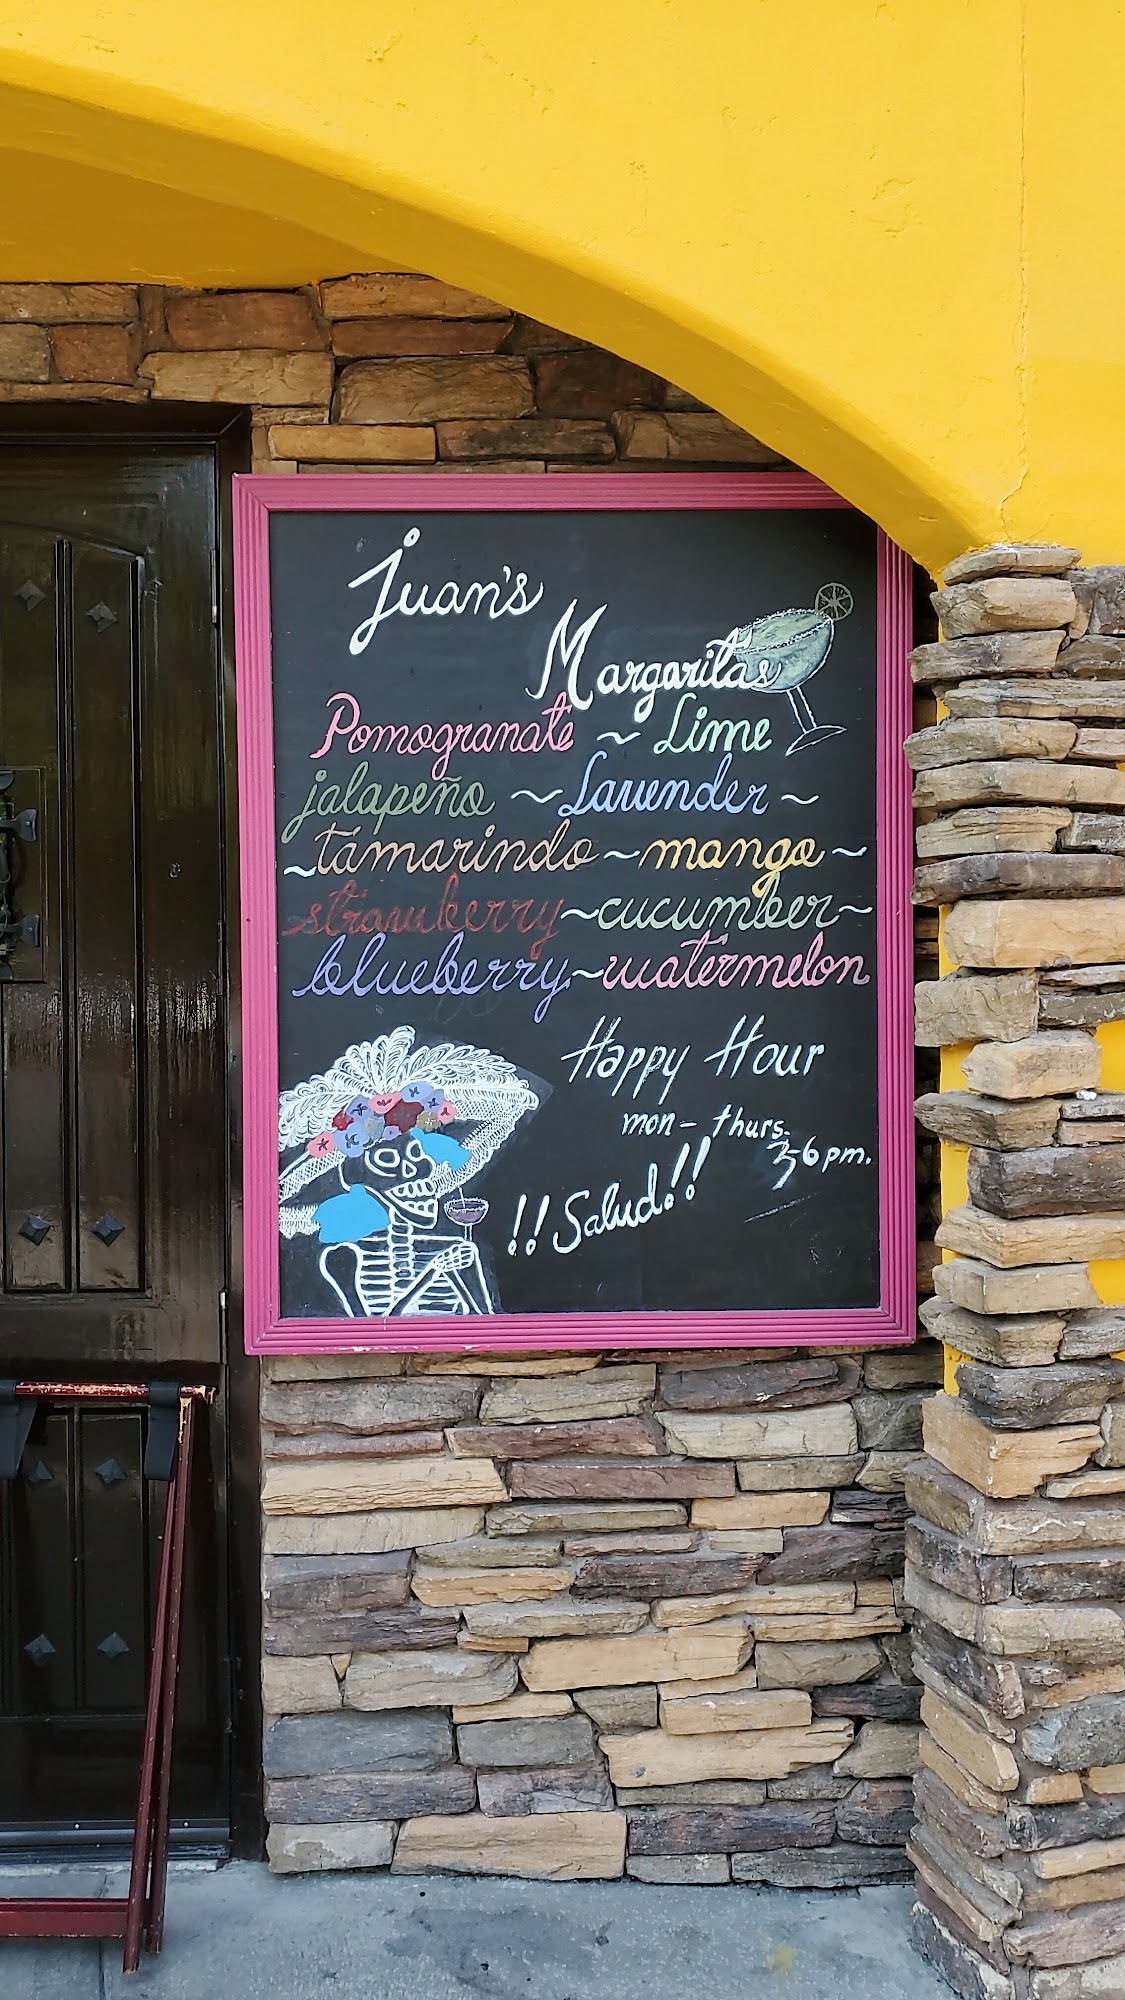 Juan's
Margaritas
Pomogranate ~ Lime
jalapeño ~ Lavender ~
~tamarindo~mango~
strawberry~cucumber~
blueberry~watermelon
Happy Hour
mon - thurs.
3-6pm.
!!Salud!!